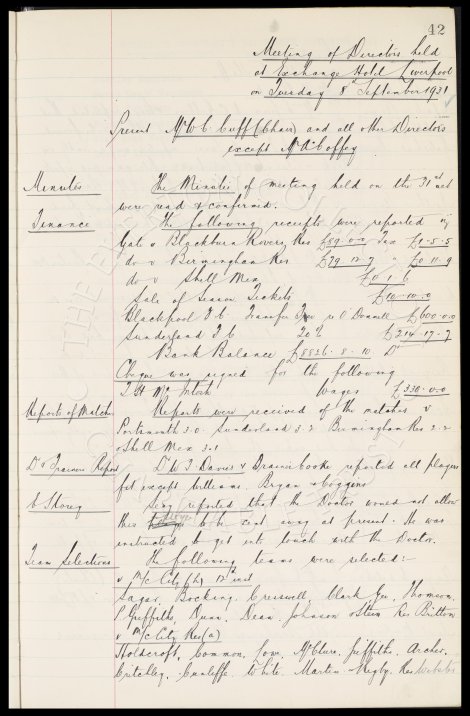 42
Meeting of Directors held
at Exchange Hotel Liverpool
on Tuesday 8th September 1931
Present Mr W. C. Cuff (Chair) and all other Directors
except Mr A Coffey
Minutes The Minutes of meeting held on the 31st ult
were read & confirmed.
Finance The following receipts were reported viz
Gate v Blackburn Rovers Res £89.0.0 Tax £1-5-5
do v Birmingham Res £79 12-9 " £0 11-9
do v Shell Mex £0 1 6
Sale of Season Tickets £10-10-0
Blackpool F C Transfer Fee v O Donnell £600-0-0
Sunderland F C 20% £214-17-7
Bank Balance £8826-8-10 Dr
Cheque was signed for the following
T H McIntosh Wages £330-0-0
Reports of Matches Reports were received of the matches v
Portsmouth 3.0 Sunderland 3-2 Birmingham Res 2-2
& Shell Mex 3-1
Dr & Trainers Report Dr W J Davies & Trainer Cooke reported all players
fit except Williams. Bryan & Goggins
E Storey Secy reported that the Doctor would not allow
this to be sent away at present. He was
instructed to get into touch with the Doctor.
Team Selections The following teams were selected:-
v M/c City (h) 12th inst
Sagar, Bocking. Cresswell, Clark Gee, Thomson.
P Griffiths, Dunn, Dean. Johnson & Stein Res Britton
v M/c City Res (a)
Holdcroft, Common, Lowe, McClure, Griffiths. Archer.
Critchley, Cunliffe. White. Martin & Rigby. Res Webster